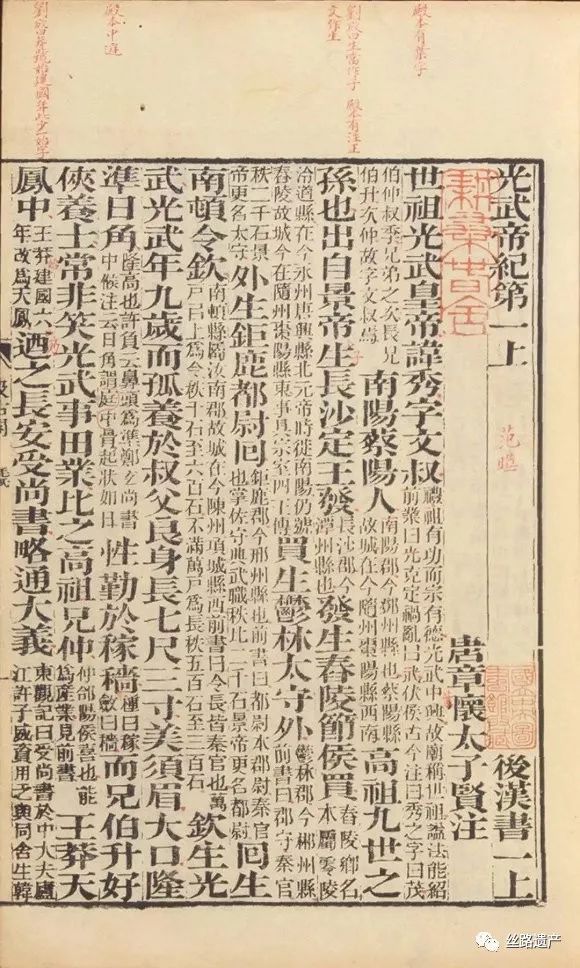 殿本有葉字
劉攽曰生當作子 殿本有注正文作生
殿本中庭
劉攽曰莽號始建國年此少一始字
光武帝紀第一上 范曄 後漢書一上
唐章懷太子賢注
世祖光武皇帝諱秀字文叔禮祖有功而宗有德光武中興故廟稱世祖諡法能紹前業曰光克定禍亂曰武伏侯古今注曰秀之字曰茂
伯仲叔季兄弟之次長兄伯升次仲故字文叔焉南陽蔡陽人南陽郡今鄧州縣也蔡陽縣故城在今隨州棗陽縣西南高祖九世之
孫也出自景帝生長沙定王發長沙郡今潭州縣也發生舂陵節侯買舂陵鄉名本屬零陵
泠道縣在今永州唐興縣北元帝時徙南陽仍號舂陵故城今在隨州棗陽縣東事具宗室四王傳買生鬱林太守外鬱林郡今郴州縣前書曰郡守秦官
秩二千石景帝更名太守外生鉅鹿都尉回鉅鹿郡今邢州縣也前書曰都尉本郡尉秦官也掌佐守典武職秩比二千石景帝更名都尉回生
南頓令欽南頓縣屬汝南郡故城在今陳州項城縣西前書曰令長皆秦官也萬戶已上爲令秩千石至六百石不滿萬戶爲長秩五百石至三百石欽生光
武光武年九歲而孤養於叔父良身長七尺三寸美須眉大口隆
準日角隆高也許負云鼻頭爲準鄭玄尚書中候注云日角謂庭中骨起狀如日性勤於稼穡種曰稼斂曰穡而兄伯升好
俠養士常非笑光武事田業比之高祖兄仲仲郃陽侯喜也能爲産業見前書王莽天
鳳中王莽建國六年改爲天鳳迺之長安受尚書略通大義東觀記曰受尚書於中大夫廬江許子威資用乏與同舍生韓
丝路遗产